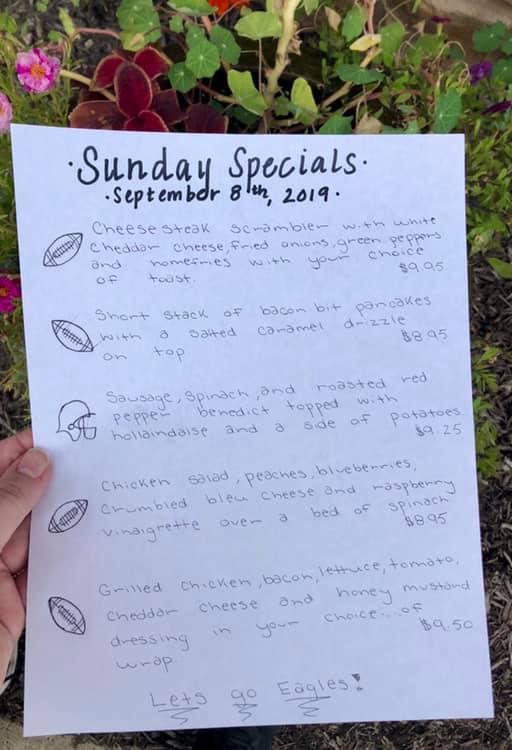 ·Sunday Specials·
·September 8th, 2019·
Cheese steak scrambler with white
Cheddar cheese, fried onions, green peppers
and homefries with your choice
of toast. $9.95
Short stack of bacon bit pancakes
with a salted caramel drizzle
on top $8.95
Sausage, spinach, and roasted red
pepper benedict topped with
hollaindaise and a side of potatoes
$9.25
Chicken salad, peaches, blueberries,
Crumbled bleu cheese and raspberry
vinaigrette over a bed of spinach
$8.95
Grilled chicken, bacon, lettuce, tomato,
cheddar cheese and honey mustard
dressing in your choice... of
wrap. $9.50
Lets go Eagles!